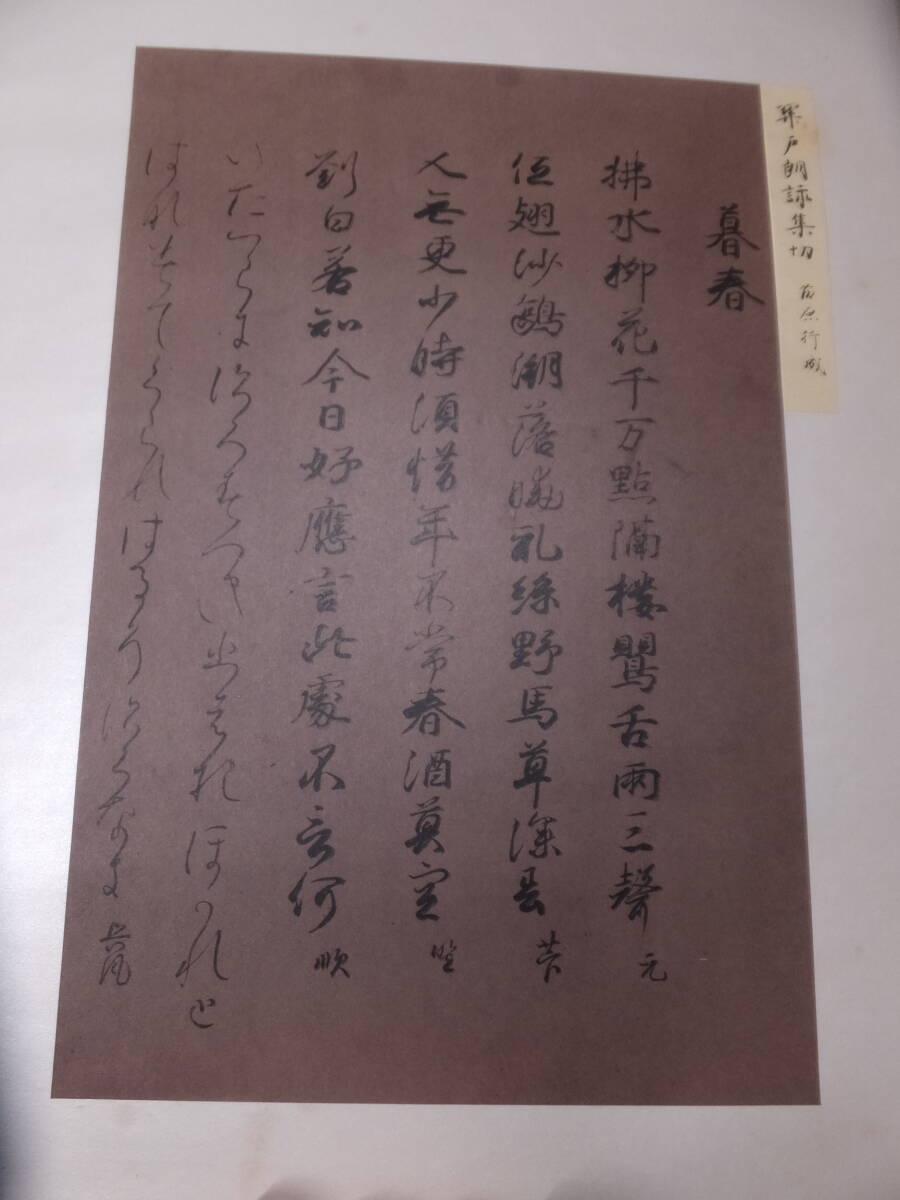 関戸朗詠集切 藤原行成
暮春
拂水柳花千万點隔樓鶯舌兩三聲 元
低翅沙鷗潮落暁乱絲野馬草深春 菅
人無更少時須惜年不常春酒莫空 野
劉白若知今日好應言此處不言何 順
いたつらにすくすつきひはおほかれと
はなみてくらすはるそすくなき 興風